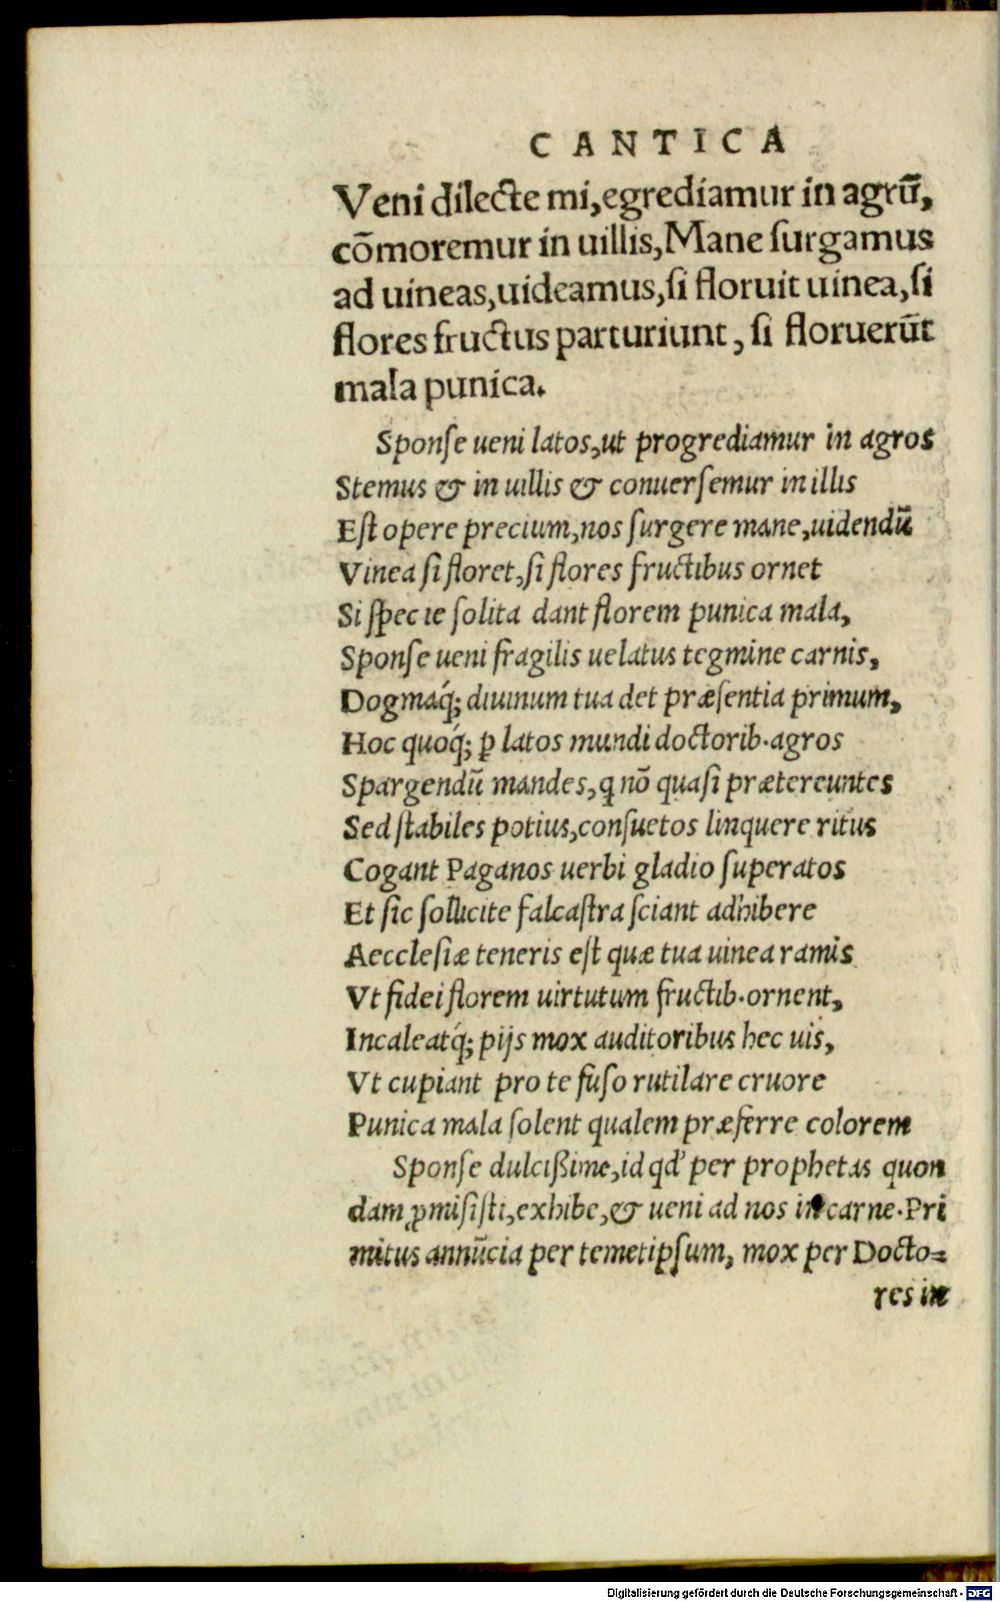 CANTICA
Veni dilecte mi,egrediamur in agrū,
cōmoremur in uillis,Mane ſurgamus
ad uineas,uideamus,ſi floruit uinea,ſi
flores fructus parturiunt, ſi floruerūt
mala punica.
Sponſe ueni latos,ut progrediamur in agros
Stemus & in uillis & conuerſemur in illis
Eſt opere precium,nos ſurgere mane,uidendū
Vinea ſi floret,ſi flores fructibus ornet
Si ſpecie ſolita dant florem punica mala,
Sponſe ueni fragilis uelatus tegmine carnis,
Dogmaq́; diuinum tua det præſentia primum,
Hoc quoq́; ꝑ latos mundi doctorib.agros
Spargendū mandes,q nō quaſi prætereuntes
Sed ſtabiles potius,conſuetos linquere ritus
Cogant Paganos uerbi gladio ſuperatos
Et ſic ſollicite falcaſtra ſciant adhibere
Aecclesiæ teneris eſt quæ tua uinea ramis
Vt fidei florem uirtutum fructib.ornent,
Incaleatq́; pijs mox auditoribus hec uis,
Vt cupiant pro te fuſo rutilare cruore
Punica mala ſolent qualem præferre colorem
Sponſe dulcißime,id qd' per prophetas quon
dam ꝓmiſiſti,exhibe,& ueni ad nos in carne.Pri
mitus annūcia per temetipſum, mox per Docto⸗
res in
Digitalisierung gefördert durch die Deutsche Forschungsgemeinschaft - DFG